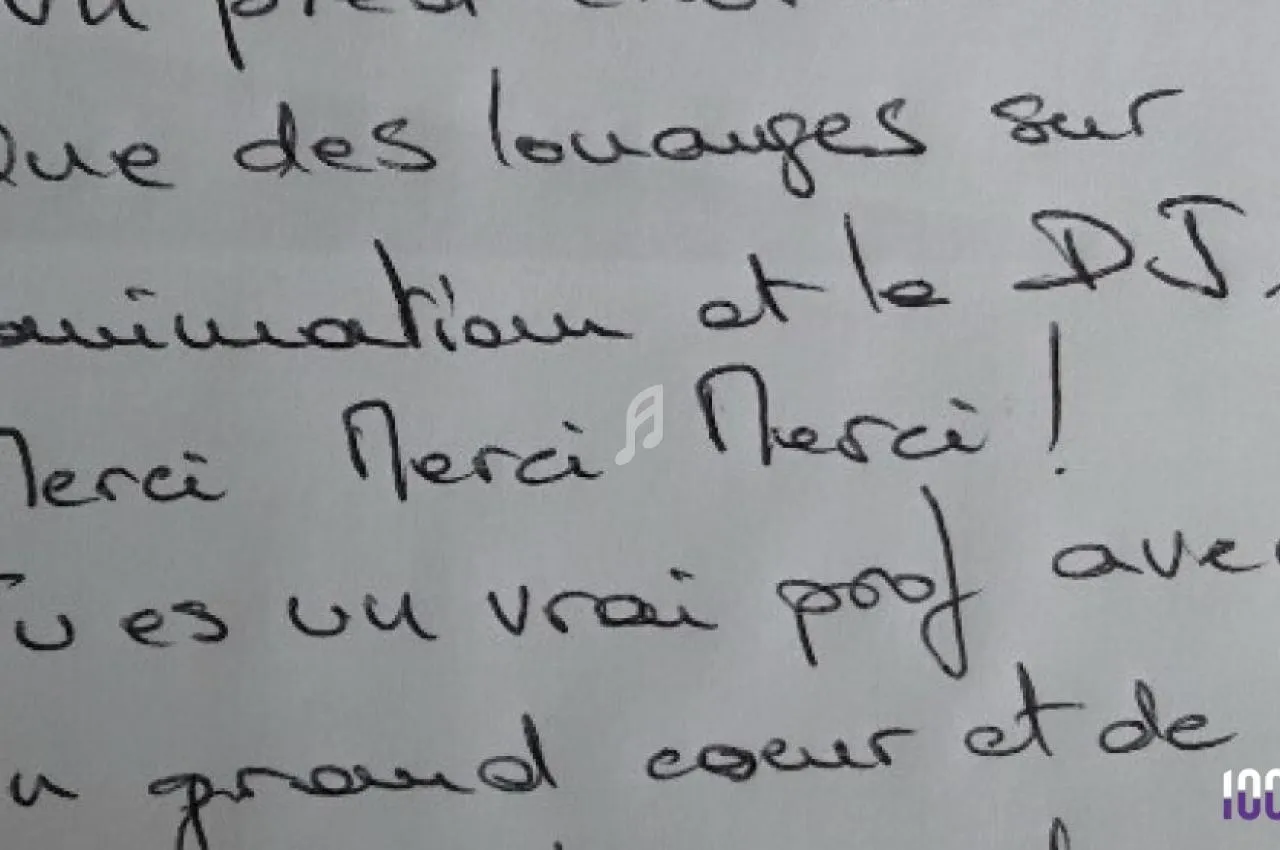 Que des louanges sur
animation et le DJ,
Merci Merci Merci !
Tu es un vrai prof avec
un grand cœur et de
100